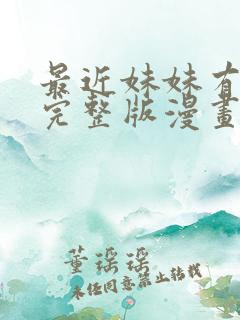 最近妹妹有
完整版漫畫
董瑶瑶
未经同意禁止转载